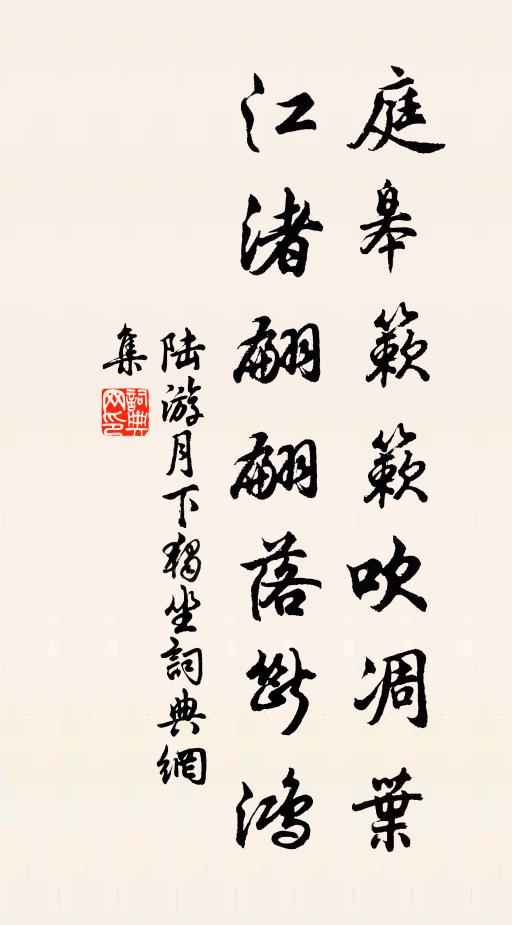 庭皋簌簌吹凋葉
江渚翩翩落斷鴻
陸游月下獨坐詞典網
集
詞典
网印